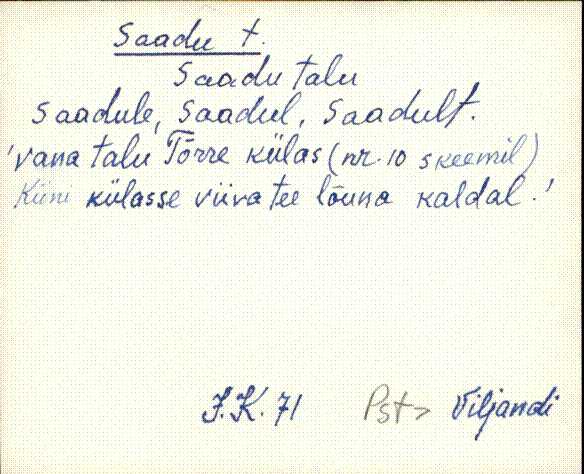 Saadu t.
Saadu talu
Saadule, Saadul, Saadult.
'vana talu Tõrre külas (nr. 10 skeemil)
Küni külasse viiva tee lõuna kaldal.'
J.K. 71 Pst > Viljandi